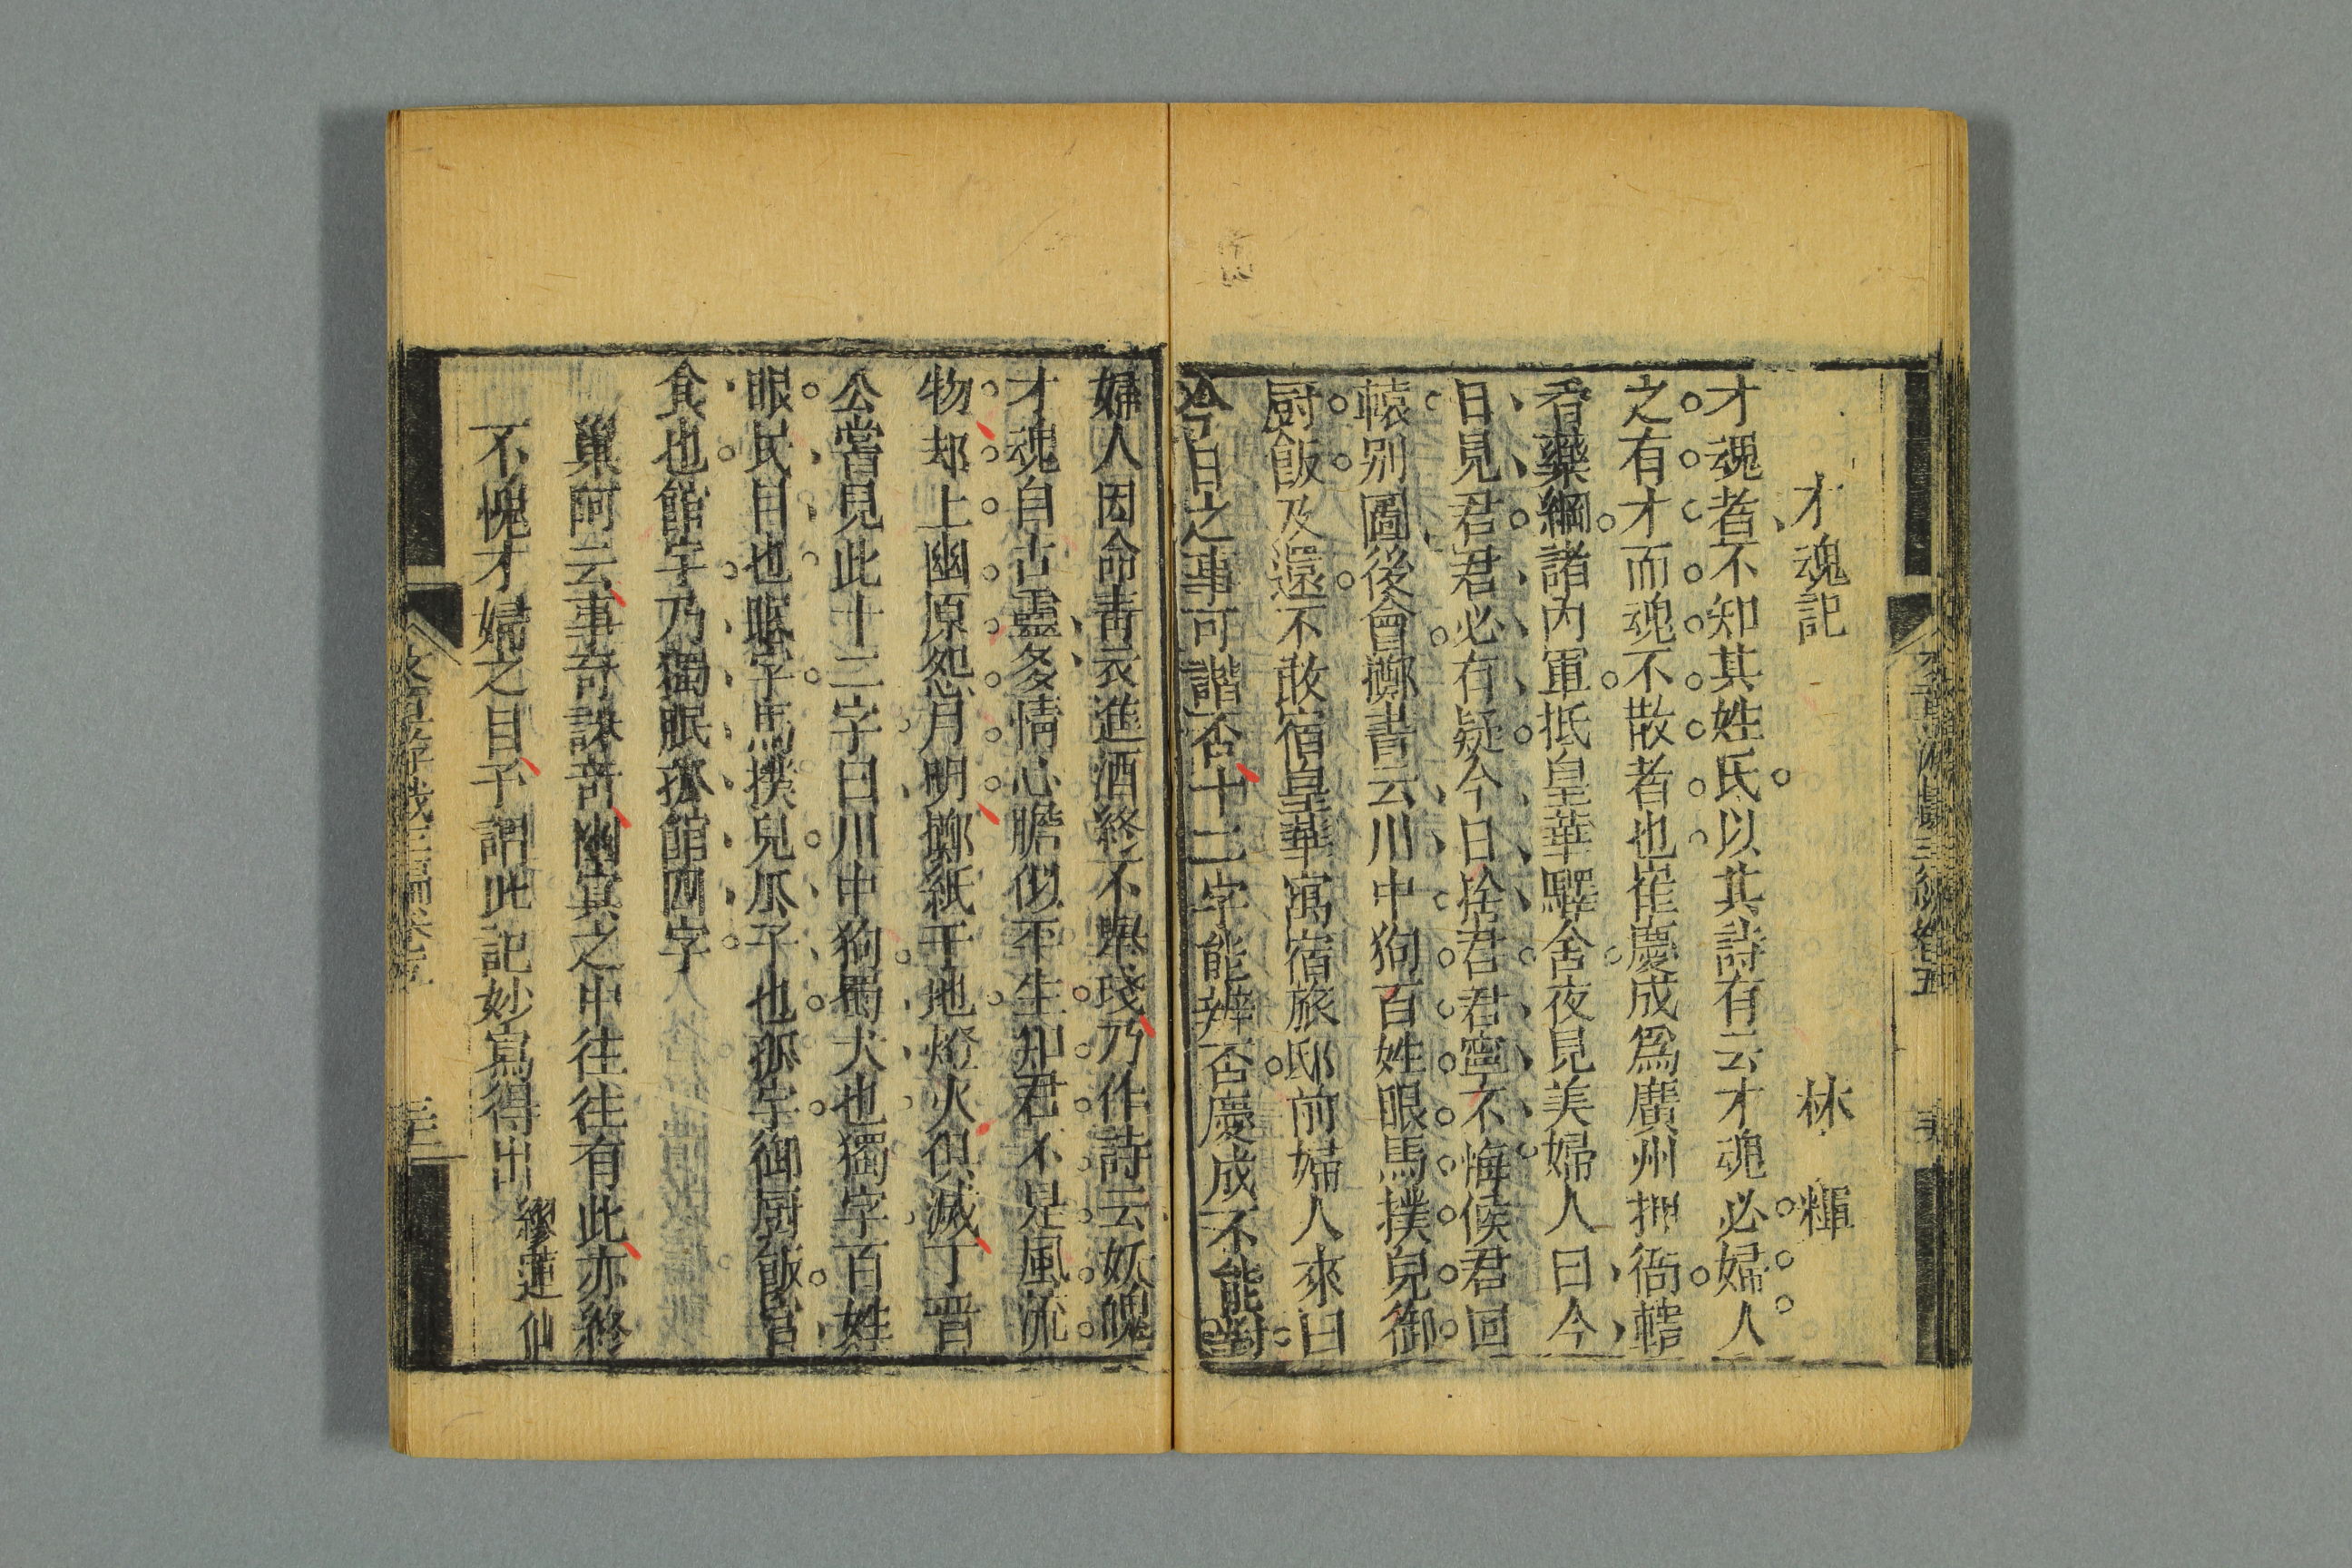 才魂記　林　輝
才魂者不知其姓氏以其詩有云才魂必婦人
之有才而魂不散者也崔慶成爲廣州押衙轄
香藥綱諸内軍抵皇華驛舍夜見美婦人曰今
日見君君必有疑今日捨君君寧不悔候君回
轅别圖後會擲書云川中狗百姓眼馬撲兒御
厨飯及還不敢宿皇華寓宿旅邸前婦人來曰
今日之事可諧否十二字能辨否慶成不能對
婦人因命靑衣進酒終不舉琖乃作詩云妖魄
才魂自古靈多情心膽似平生知君不是風流
物却上幽原怨月明擲紙于地燈火俱滅丁晋
公嘗見此十二字曰川中狗蜀犬也獨字百姓
眼民目也眠字馬撲兒瓜子也孤字御厨飯官
食也館字乃獨眠孤館四字
巢阿云事奇語奇幽冥之中往往有此亦終
不愧才婦之目予謂此記妙寫得出
繆蓮仙
文章游戲三編卷五